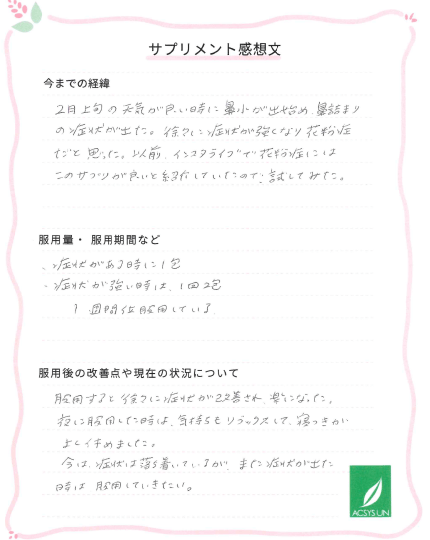 サプリメント感想文
今までの経緯
2月上旬の天気が良い時に鼻水が出始め、鼻詰まり
の症状が出た。徐々に症状が強くなり花粉症
だと思った。以前、インスタライブで花粉症には
このサプリが良いと紹介していたので、試してみた。
服用量・服用期間など
・症状がある時に1包
・症状が強い時は、1回2包
1週間位服用している
服用後の改善点や現在の状況について
服用すると徐々に症状が改善され、楽になった。
夜に服用した時は、気持ちもリラックスして、寝つきが
よくイきめました。
今は、症状は落ち着いているが、また症状が出た
時は服用していきたい。
ACSYS UN